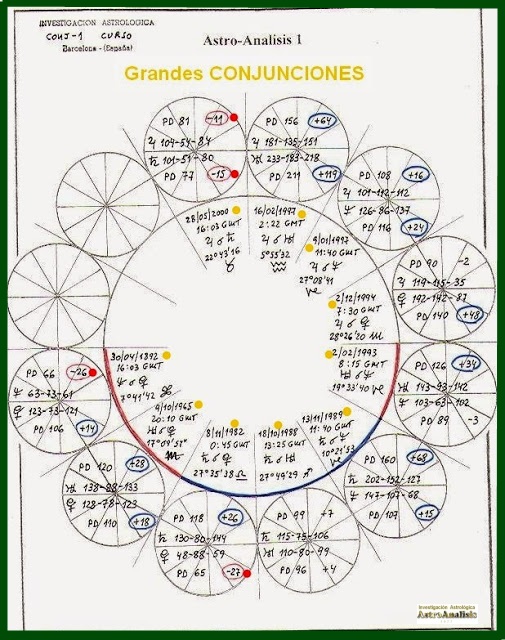 INVESTIGACION ASTROLOGICA
CONJ-1 CURSO
Barcelona - (España)
Astro-Analisis 1
Grandes CONJUNCIONES
PD 81 -11
♃ 104-54-84
♄ 101-51-80
PD 77 -15
PD 156 +64
♃ 181-135-151
♅ 233-183-218
PD 211 +119
PD 108 +16
♃ 101-112-112
♆ 126-86-137
PD 116 +24
PD 90 -2
♃ 119-115-35
♀ 192-142-87
PD 140 +48
PD 126 +34
♅ 143-93-142
♆ 103-63-102
PD 89 -3
PD 160 +68
♄ 202-152-127
♆ 147-107-68
PD 107 +15
PD 99 +7
♄ 115-75-106
♅ 110-80-99
PD 96 +4
PD 118 +26
♄ 130-80-144
♀ 48-88-59
PD 65 -27
PD 120 +28
♅ 138-88-133
♀ 128-78-123
PD 110 +18
PD 66 -26
♆ 63-73-61
♀ 123-73-121
PD 106 +14
28/05/2000
16:03 GMT
♃ ☌ ♄
22°43'16
♉
16/02/1997
2:22 GMT
♃ ☌ ♅
5°55'32
♒
9/01/1997
11:40 GMT
♃ ☌ ♆
27°08'41
2/12/1994
7:30 GMT
♃ ☌ ♀
28°26'20 ♏
2/02/1993
8:15 GMT
♅ ☌ ♆
19°33'40
13/11/1989
11:40 GMT
♄ ☌ ♆
10°21'53
18/10/1988
13:25 GMT
♄ ☌ ♅
27°49'29 ♐
8/11/1982
0:45 GMT
♄ ☌ ♀
27°35'38 ♎
9/10/1965
20:10 GMT
♅ ☌ ♀
17°09'52"
♍
30/04/1892
16:03 GMT
♆ ☌ ♀
7°41'42
Investigación Astrológica
AstroAnalisis